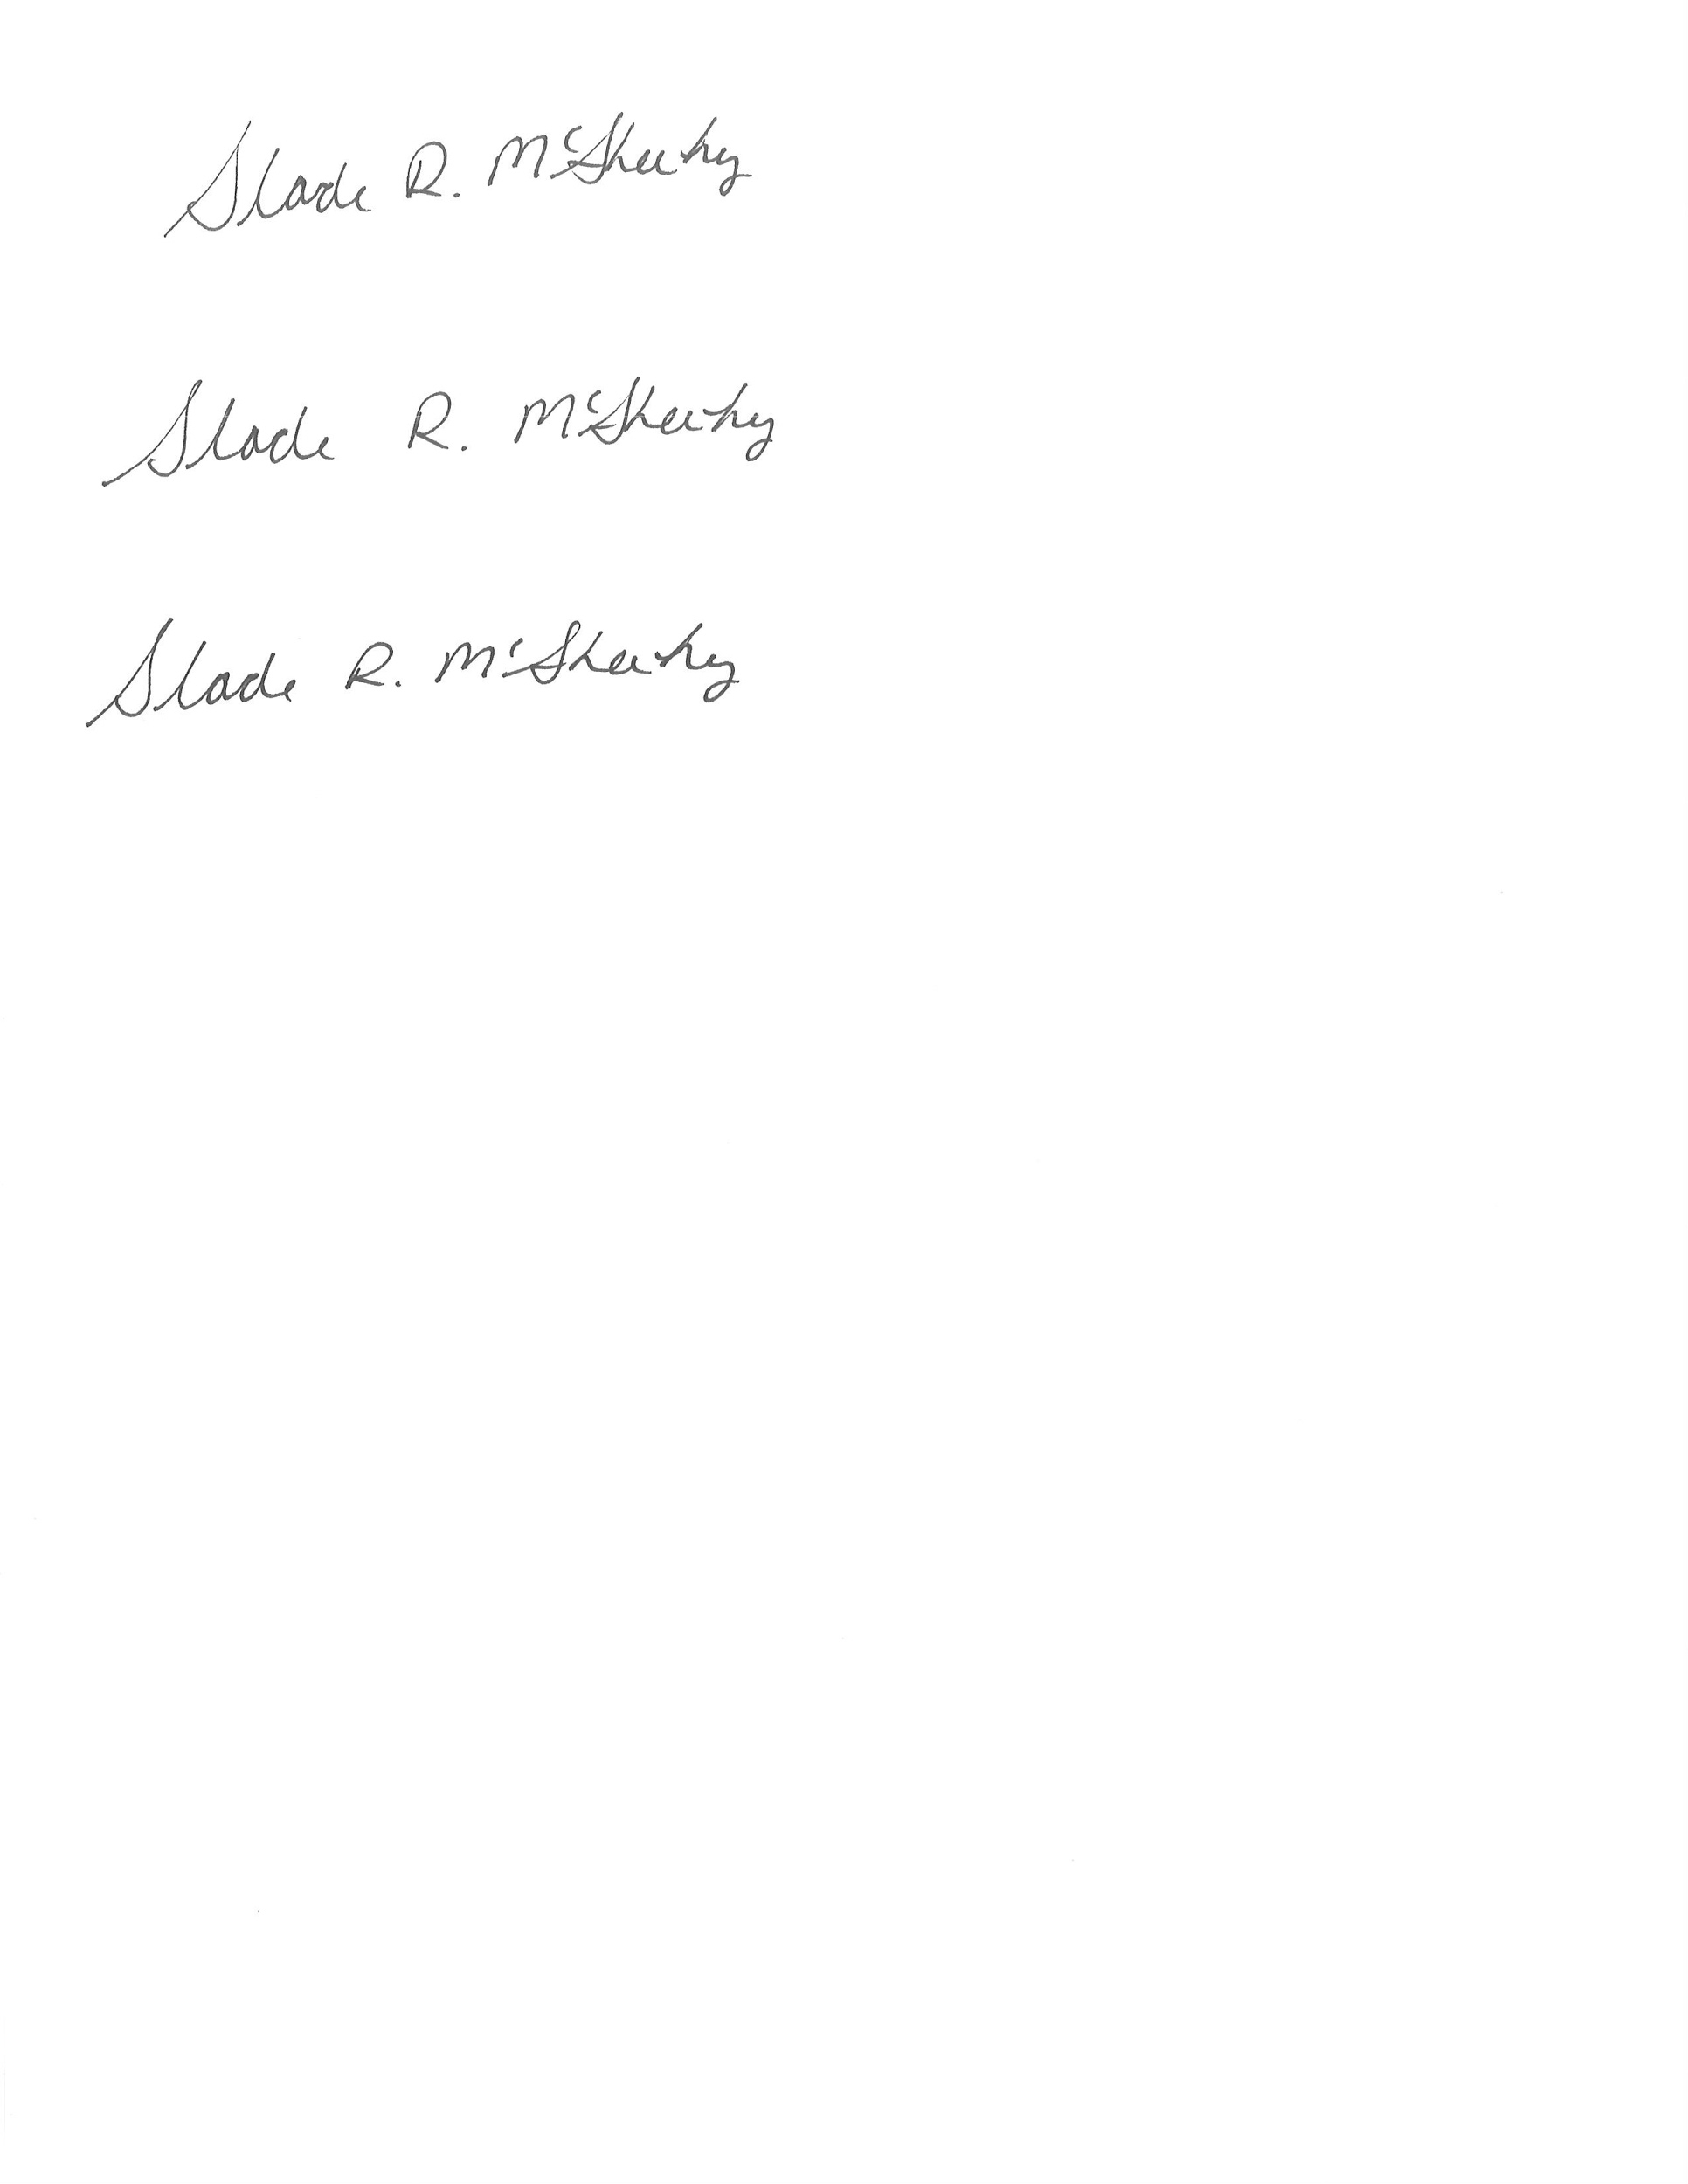 Slade R. McSheehy
Slade R. McSheehy
Slade R. McSheehy